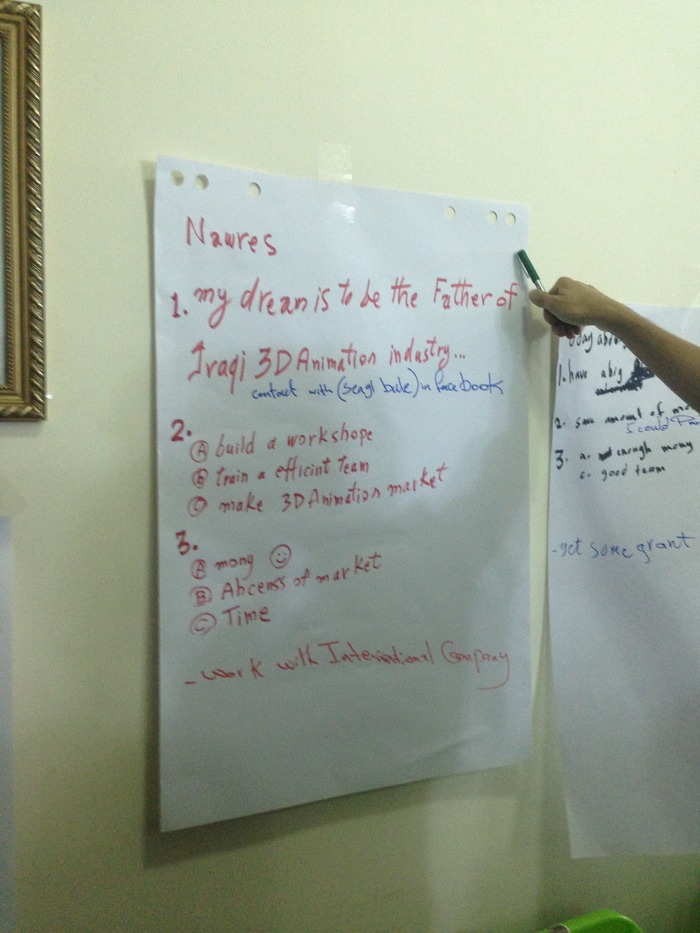 Nawres
1. my drean is to be the Father of
Iraqi 3D Animation industry...
contact with (seagl bale) in face book
2.
A build a workshope
B train a efficint team
C make 3D Animation market
3.
A mony ☺
B Abcenss of market
C Time
- work with International Company
1. have a big
2. some amount of
I could
3. a. enough mony
c. good team
- get some grant